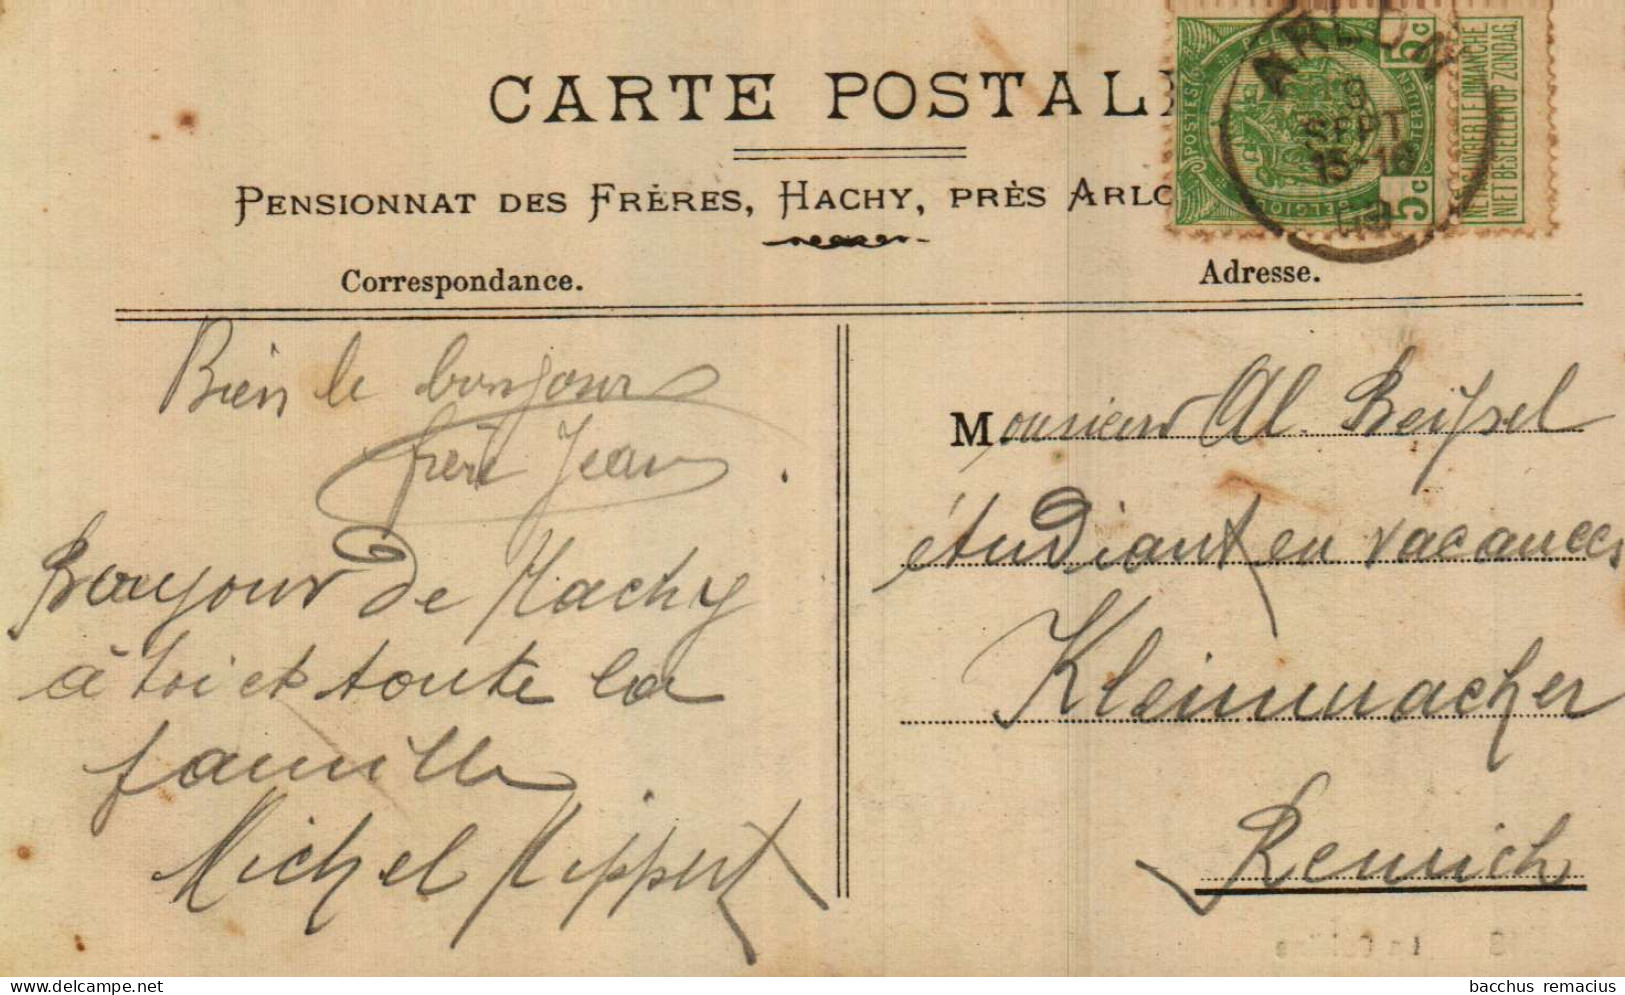 CARTE POSTAL
PENSIONNAT DES FRÈRES, HACHY, PRÈS ARLO
Correspondance.
Adresse.
POSTES
BELGIQUE
5c
5c
NE PAS LIVRER LE DIMANCHE
NIET BESTELLEN OP ZONDAG.
ARLON
9
SEPT
15-16
Bien le bonjour
frère Jean.
Bonjour de Hachy
à toi et toute la
famille
Michel Nippert
Monsieur Al. Beissel
étudiant en vacances
Kleinmacher
Remich
bacchus remacius